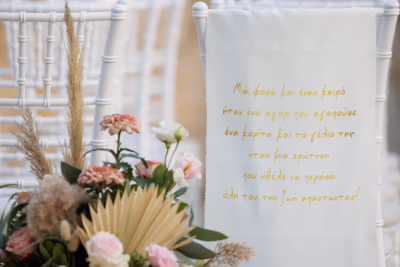 Μιά φορά και έναν καιρό
ήταν ένα αγόρι που αγαπούσε
ένα κορίτσι και το γέλιο της
ήταν μία ερώτηση
που ήθελε να περάσει
όλη του την ζωή απαντώντας!